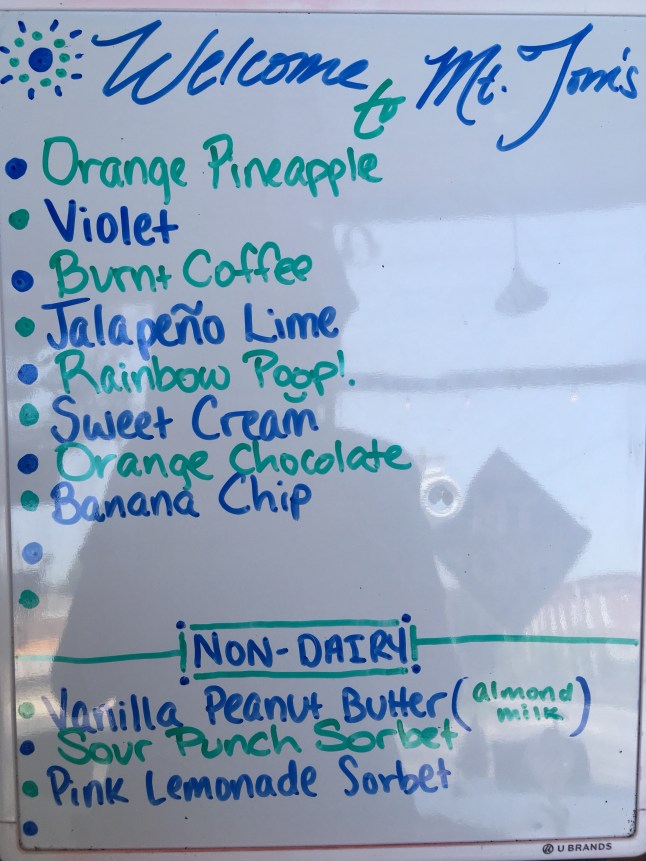 Welcome to Mt. Tom's
Orange Pineapple
Violet
Burnt Coffee
Jalapeño Lime
Rainbow Poop!
Sweet Cream
Orange Chocolate
Banana Chip
NON-DAIRY
Vanilla Peanut Butter (almond milk)
Sour Punch Sorbet
Pink Lemonade Sorbet
U BRANDS